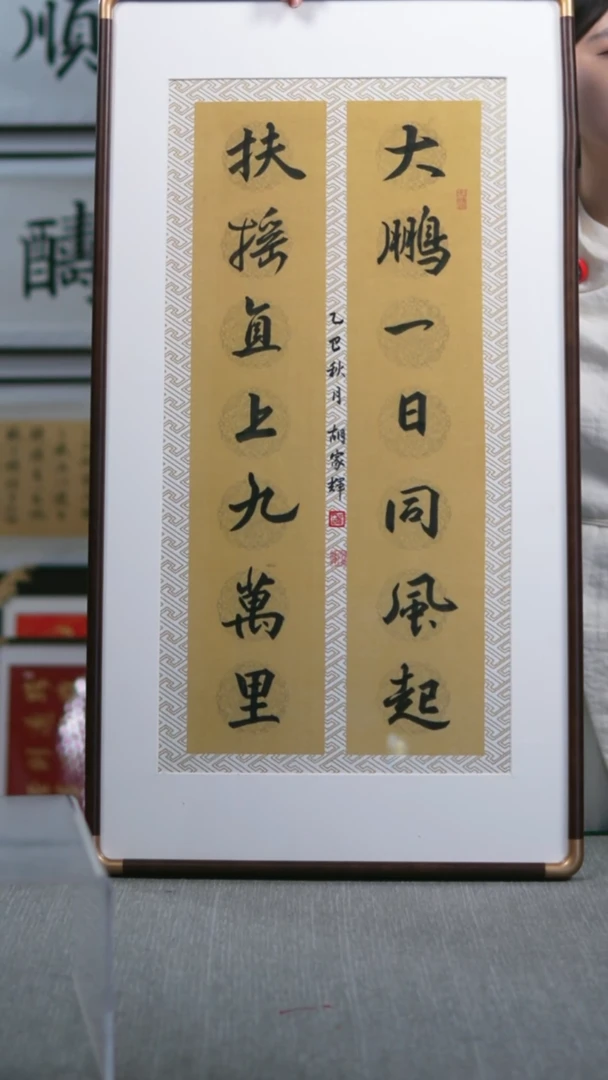 大鹏一日同風起
扶摇直上九萬里
乙巳秋月 胡家輝
順